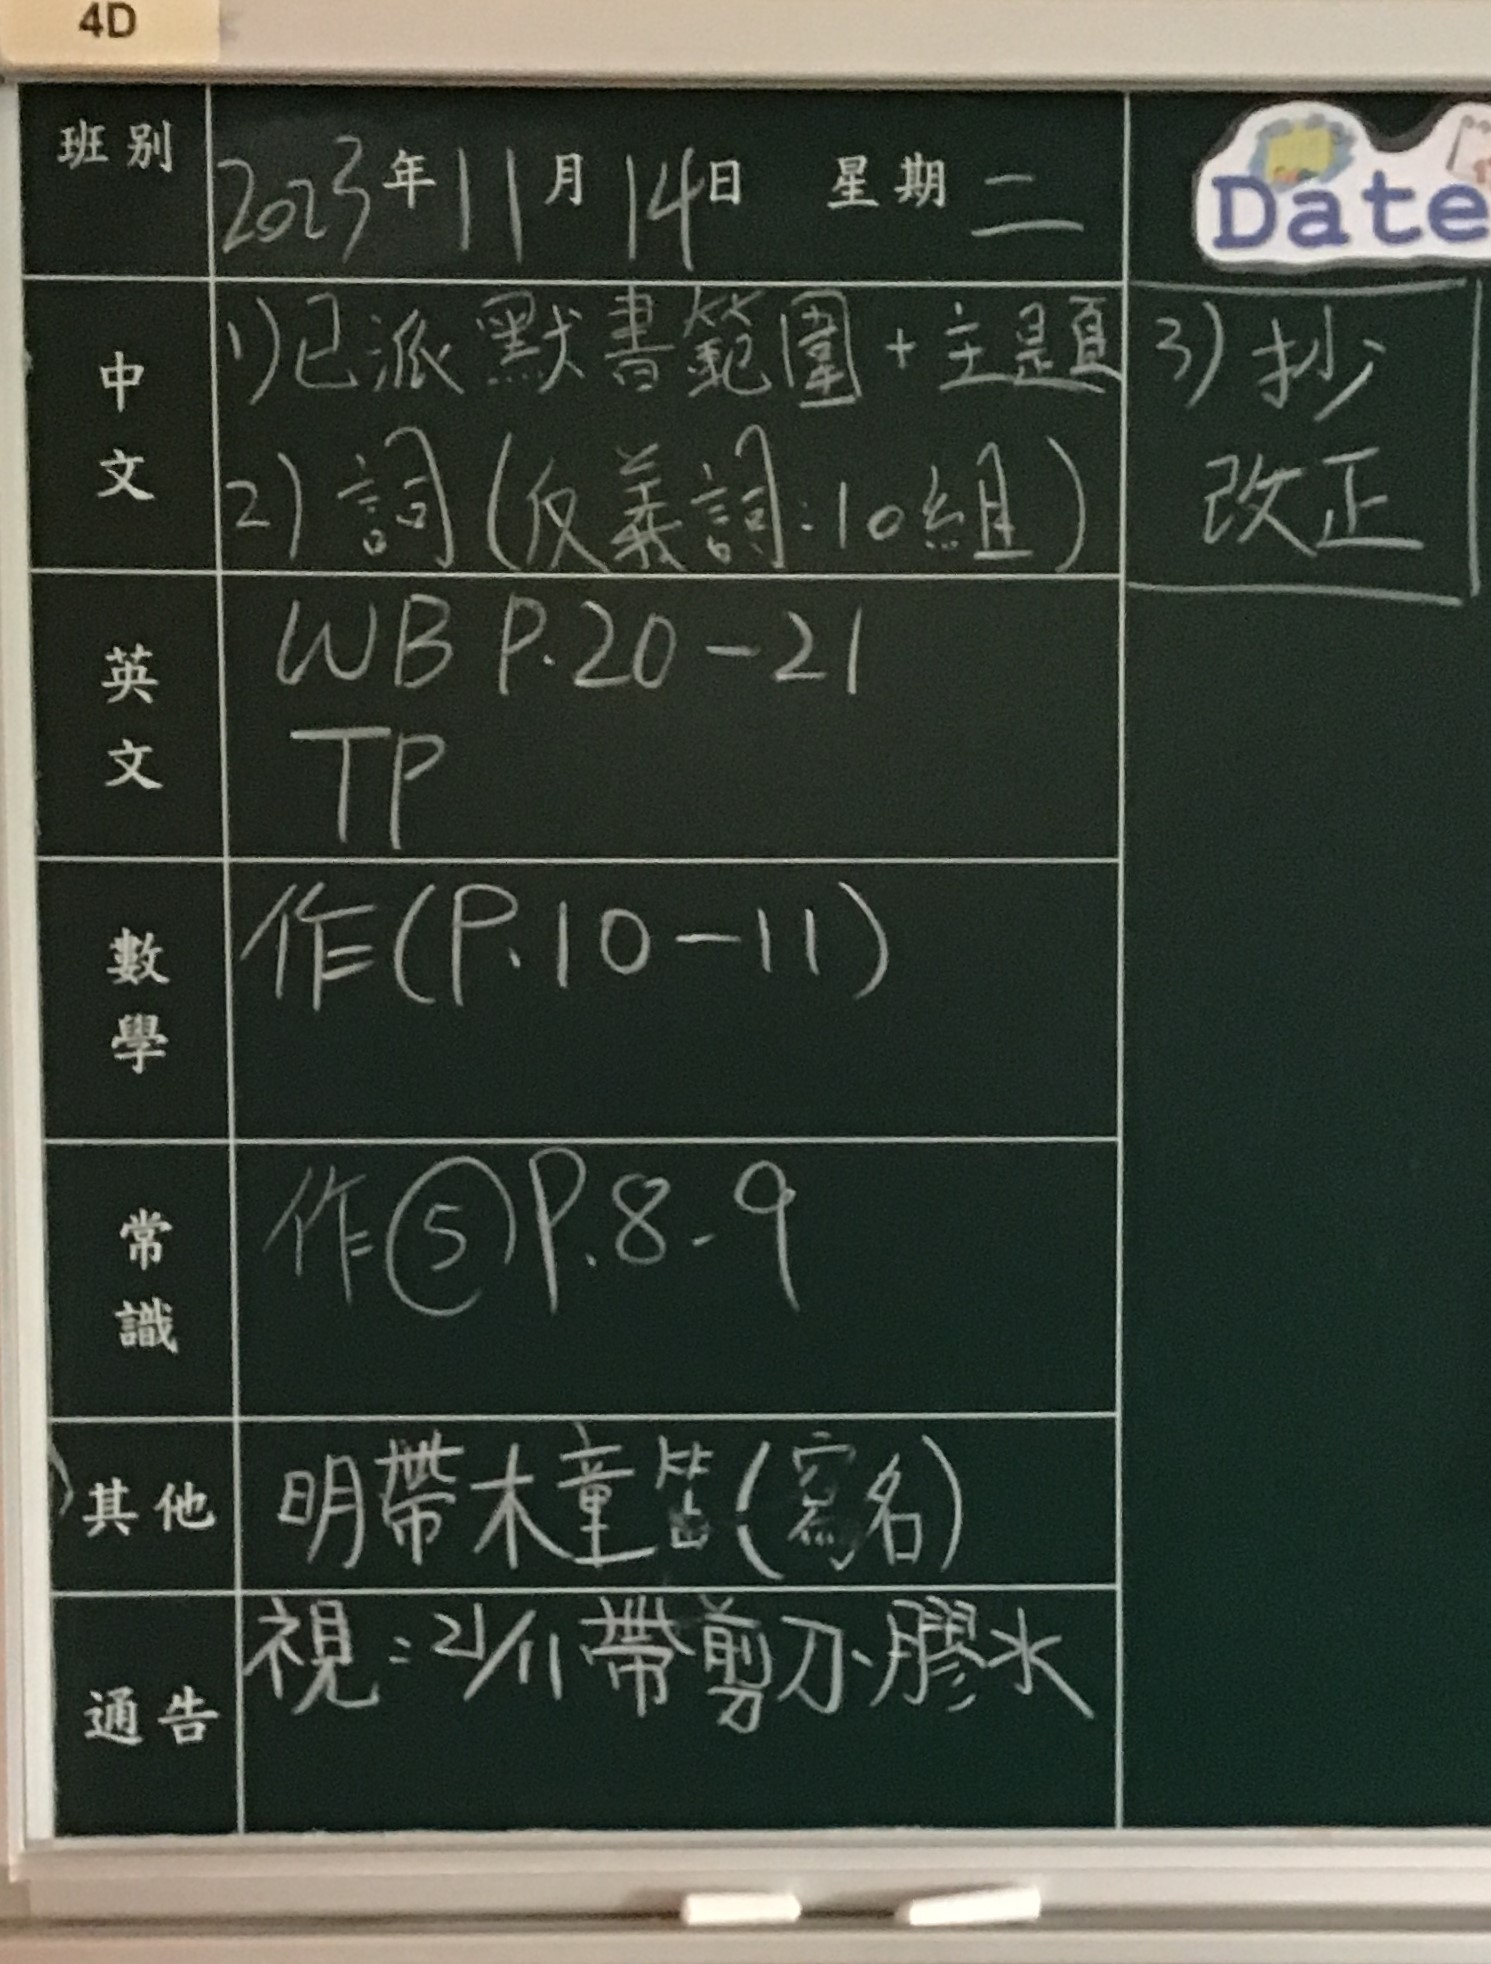 4D
班別
2023年11月14日 星期二
Date
中文
1)已派默書範圍+主題
2)詞(反義詞:10組)
3)抄
改正
英文
WB P.20-21
TP
數學
作(P.10-11)
常識
作⑤P.8-9
其他
明帶木童笛(寫名)
通告
視:21/11帶剪刀、膠水